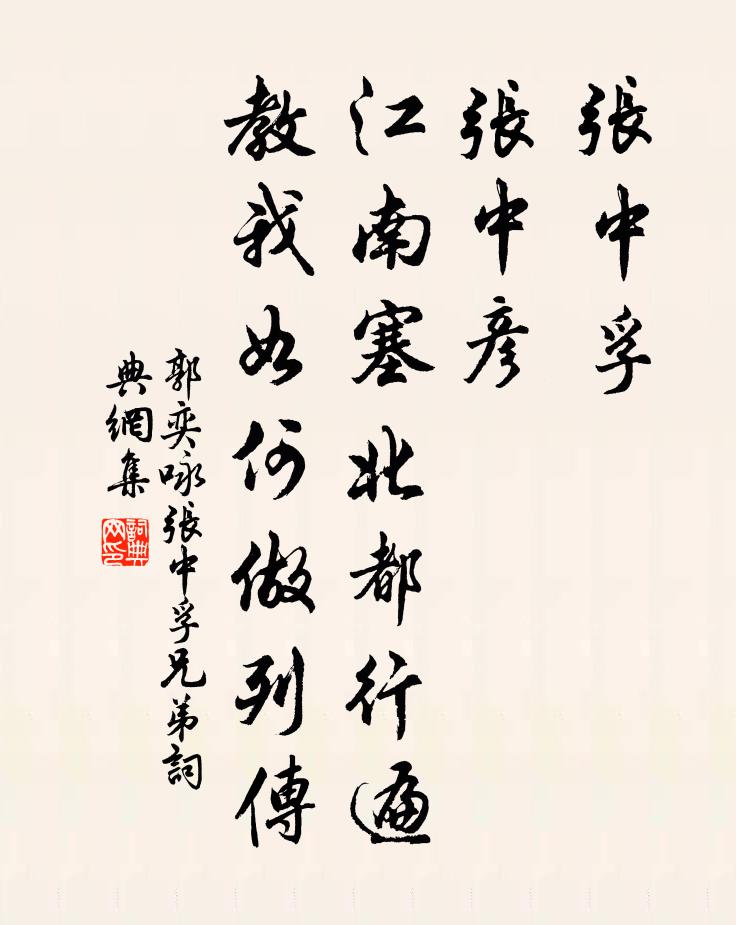 張中孚
張中彥
江南塞北都行遍
教我如何做列傳
郭奕咏張中孚兄弟詞
典網集
詞典網印